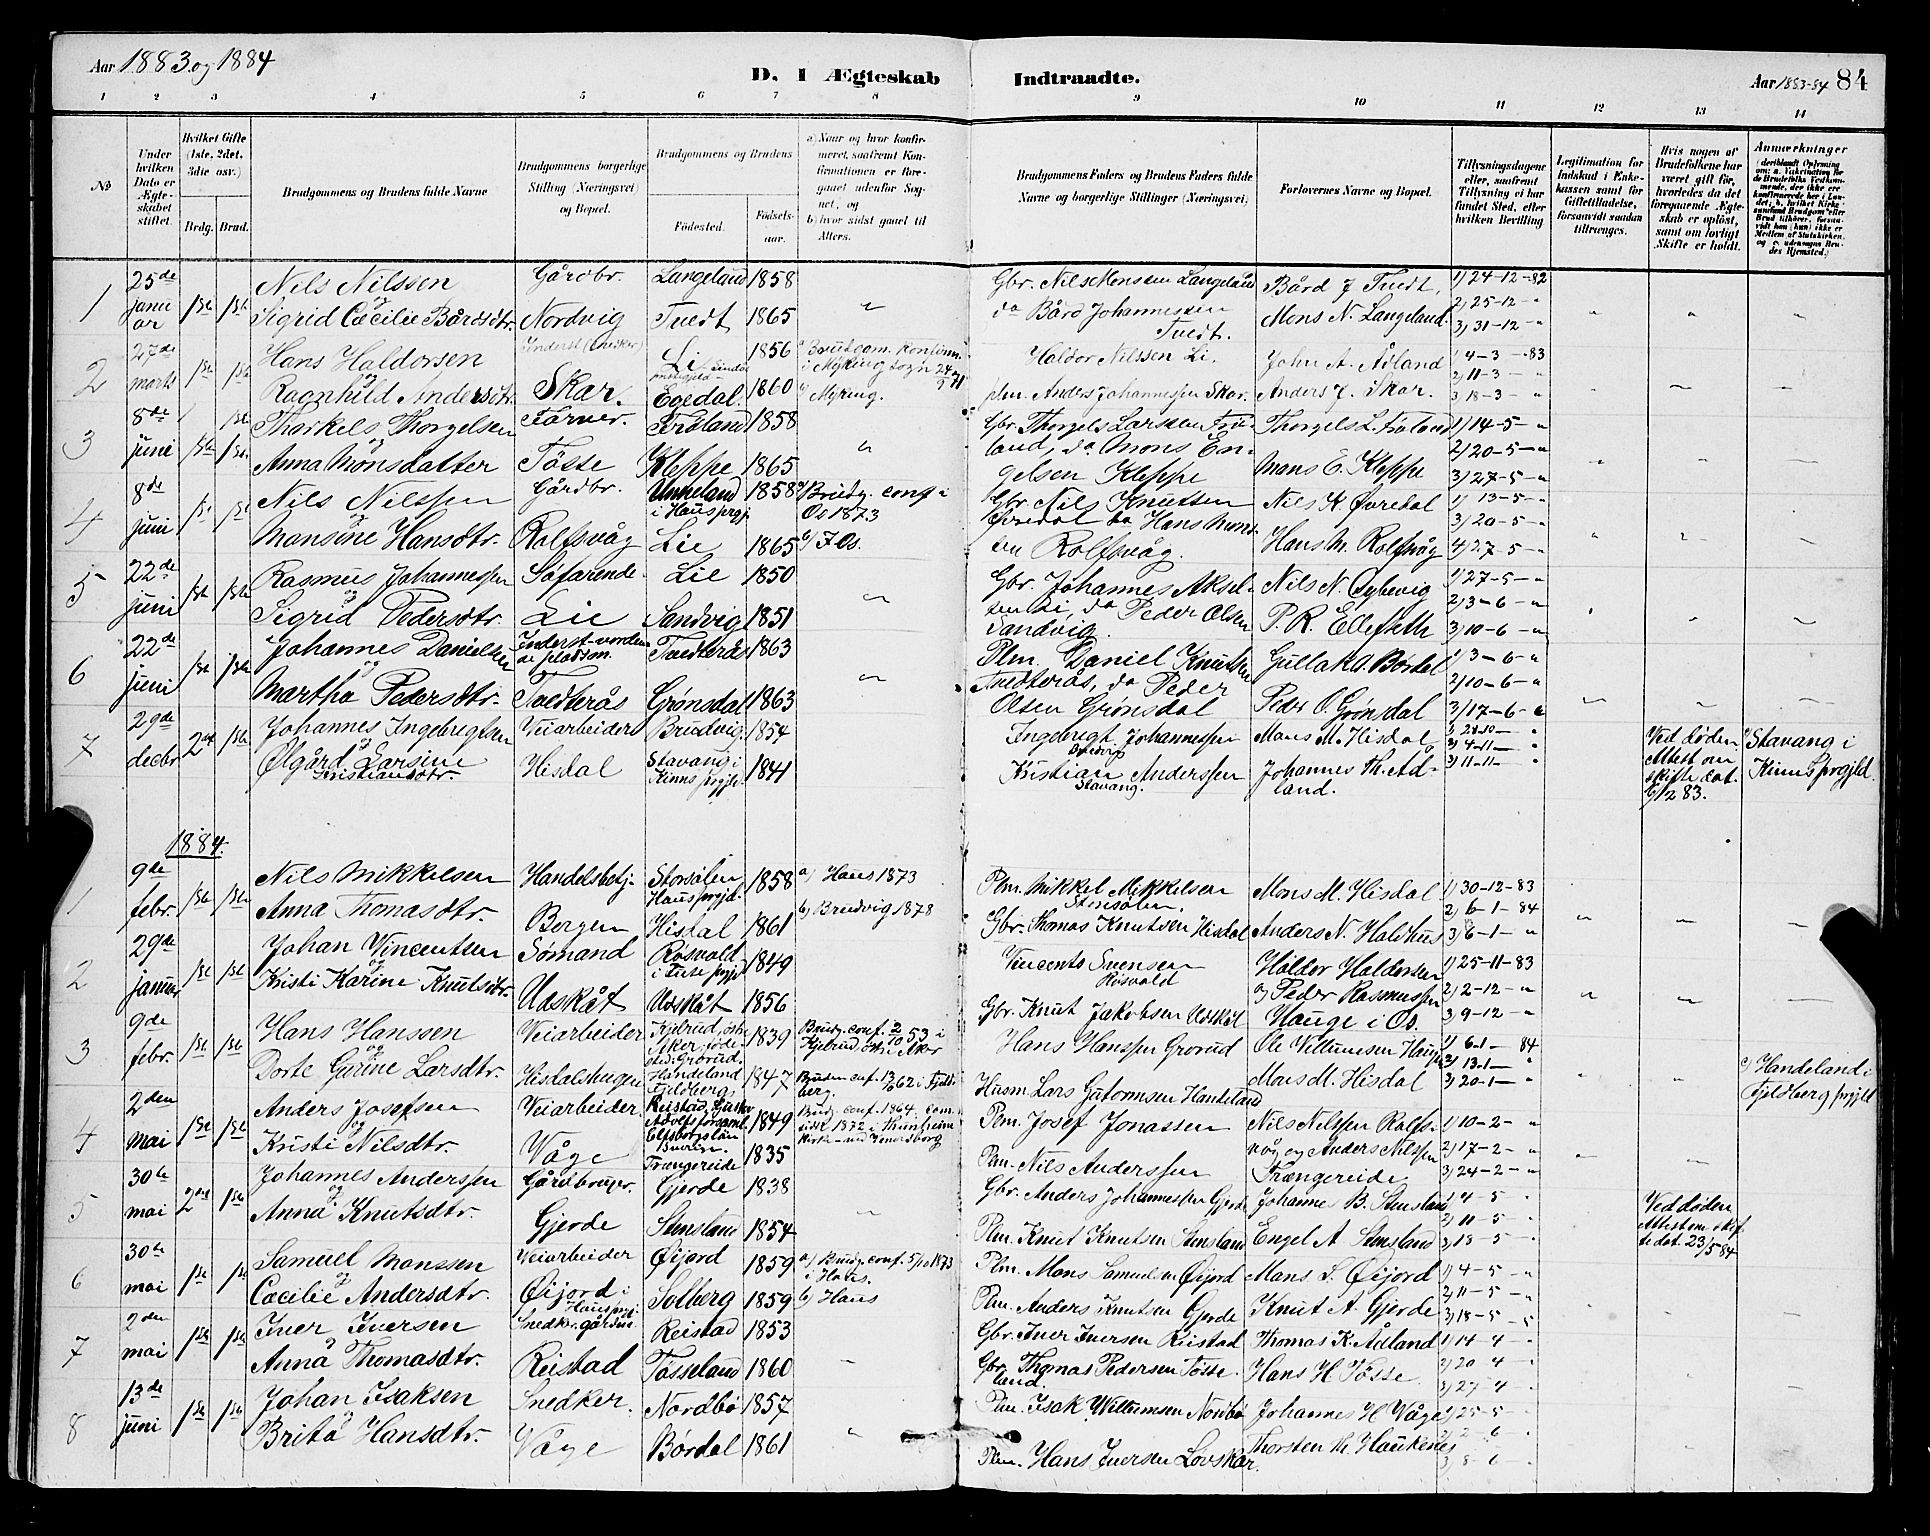 Aar 1883 og 1884
D. 1 Ægteskab Indtraadte.
Aar 1883-84 84
1 2 3 4 5 6 7 8 9 10 11 12 13 14
No
Under hvilken Dato er Ægteskabet stiftet.
Hvilket Gifte (1ste, 2det, 3die osv.)
Brdg. Brud.
Brudgommens og Brudens fulde Navne
Brudgommens borgerlige Stilling (Næringsvei) og Bopæl.
Brudgommens og Brudens
Fødested. Fødselsaar.
a) Naar og hvor konfirmeret, saafremt Konfirmationen er foregaaet udenfor Sognet, og
b) hvor sidst gaaet til Alters.
Brudgommens Faders og Brudens Faders fulde Navne og borgerlige Stillinger (Næringsvei)
Forlovernes Navne og Bopæl.
Tillysningsdagene eller, saafremt Tillysning ei har fundet Sted, efter hvilken Bevilling
Legitimation for Indskud i Enkekassen samt for Giftetilladelse, forsaavidt saadan tiltrænges.
Hvis nogen af Brudefolkene har været gift før, hvorledes da det foregaaende Ægteskab er opløst, samt om lovligt Skifte er holdt.
Anmærkninger
1 25de januar 1ste 1ste
Nils Nilssen Gårdbr. Langeland 1858
og
Sigrid Cæcilie Bårdsdtr. Nordvig Tvedt 1865
Gbr. Nils Monssen Langeland Bård J Tvedt. 1) 24-12-82
do Bård Johannessen Tvedt. Mons N. Langeland. 2) 25-12-" 3) 31-12-"
2 27de marts 1ste 1ste
Hans Haldorsen Inderst Li 1856
og
Ragnhild Andersdtr. Skar. Egedal. 1860
Brudgom. konfirm. i Myking sogn 24/9 71
b) Myking.
Haldor Nilssen Li. John A. Ådland 1) 4-3-83
plm. Anders Johannessen Skar. Anders J. Skar. 2) 11-3-" 3) 18-3-"
3 8de juni 1ste 1ste
Thorkels Thorgelsen Farver. Frøland 1858
og
Anna Monsdatter Tøsse Kleppe 1865
Gbr Thorgels Larssen Frøland, do Mons Engelsen Kleppe
Thorgels L. Frøland Mons E. Kleppe
1) 14-5-" 2) 20-5-" 3) 27-5-"
4 8de juni 1ste 1ste
Nils Nilssen Gårdbr. Unneland i Haus prgj. 1858
og
Monsine Hansdtr. Rolfsvåg Lie 1865
a) Brudg. conf i Os 1873
b) I Os.
Gbr. Nils Knutsen Øvredal do Hans Monsen Rolfsvåg.
Nils K. Øvredal Hans M. Rolfsvåg
1) 13-5-" 3) 20-5-" 4) 27-5-"
5 22de juni 1ste 1ste
Rasmus Johannessen Søfarende Lie 1850
og
Sigrid Pedersdtr. Lie Sandvig 1851
Gbr. Johannes Akselsen Li, do Peder Olsen Sandvig.
P. R. Ellefseth
1) 27-5-" 2) 3-6-" 3) 10-6-"
6 22de juni 1ste 1ste
Johannes Danielsen Tvedterås 1863
og
Martha Pedersdtr. Tvedterås Grønsdal 1863
Plm. Daniel Knutsen Tvedterås, do Peder Olsen Grønsdal
Gullak A. Børdal Peder O. Grønsdal
1) 3-6-" 2) 10-6-" 3) 17-6-"
7 29de decbr 2det 1ste
Johannes Ingebrigtsen Veiarbeider Brudvig. 1854
og
Ølgård Larsine Kristiansdtr. Hisdal Stavang i Kinns prgjld. 1841
Ingebrigt Johannessen Brudvig
Kristian Anderssen Stavang.
Mons M. Hisdal Johannes Th. Ådland.
1) 28-10-" 2) 4-11-" 3) 11-11-"
Ved døden Attest om skifte dat. 6/12 83.
c) Stavang i Kinns prgjld.
1884.
1 9de febr. 1ste 1ste
Nils Mikkelsen Handelsbetj. Storsålen Haus prgjd. 1858
og
Anna Thomasdtr. Bergen Hisdal 1861
a) Haus 1873
b) Brudvig 1878
Plm. Mikkel Mikkelsen Storsålen. Mons M. Hisdal 1) 30-12-83
Gbr. Thomas Knutsen Hisdal Anders N. Haldhus 2) 6-1-84 3) 6-1-"
2 29de januar 1ste 1ste
Johan Vincentsen Sømand Røsvold i Fuse prgjd 1849
og
Kristi Karine Knutsdtr. Udskåt Udskåt 1856
Vincents Svensen Røsvold
Gbr. Knut Jakobsen Udskåt
Haldor Haldorsen og Peder Rasmussen Hauge i Os.
1) 25-11-83 2) 2-12-" 3) 9-12-"
3 9de febr. 1ste 1ste
Hans Hanssen Veiarbeider 1839
og
Dorte Gurine Larsdtr. Hisdalshugen Handeland Fjeldberg. 1847
Hans Hanssen Grorud Ole Villumsen Hauge
Husm. Lars Gutormsen Handeland Mons M. Hisdal
1) 6-1-84 2) 13-1-" 3) 20-1-"
c) Handeland i Fjeldberg prgjld
4 2den mai 1ste 1ste
Anders Josefsen Veiarbeider. 1849
og
Kristi Nilsdtr. Våge Trængereide 1835
Plm. Josef Jonassen
Plm. Nils Anderssen
Nils Nilssen Rolfsvåg og Anders Nilssen Trængereide
1) 10-2-" 2) 17-2-" 3) 24-2-"
5 30te mai 2det 1ste
Johannes Anderssen Gårdbruger. Gjerde 1838
og
Anna Knutsdtr. Gjerde Stensland 1854
Gbr. Anders Johannessen Gjerde Johannes B. Stensland
Plm. Knut Knutsen Stensland Engel A Stensland
1) 4-5-" 2) 11-5-" 3) 18-5-"
Ved døden Attest om skifte dat. 23/5 84
6 30te mai 1ste 1ste
Samuel Monssen Veiarbeider Øijord 1859
og
Cæcilie Andersdtr. Øijord i Haus prgj. Solberg 1859
a) Brudg. conf. 5/10 1873 i Haus.
b) Haus
Plm. Mons Samuelsen Øijord Mons S. Øijord
Plm. Anders Knutsen Gjerde Knut A. Gjerde
1) 4-5-" 2) 11-5-" 3) 18-5-"
7 2den mai 1ste 1ste
Iver Iversen Reistad 1853
og
Anna Thomasdtr. Reistad Tøsseland 1860
Gbr. Iver Iversen Reistad Thomas K. Ådland
Gbr. Thomas Pedersen Tøsseland. Hans H Tøsse
1) 14-4-" 2) 20 4-" 3) 27-4-"
8 13de juni 1ste 1ste
Johan Isaksen Snedker. Nordbø 1857
og
Brita Hansdtr. Våge Børdal 1861
Plm. Isak Willumsen Nordbø Johannes H Våge
Plm. Hans Iversen Lovskar. Thorsten Th. Haukenes
1) 25-5-" 2) 2-6-" 3) 8-6-"